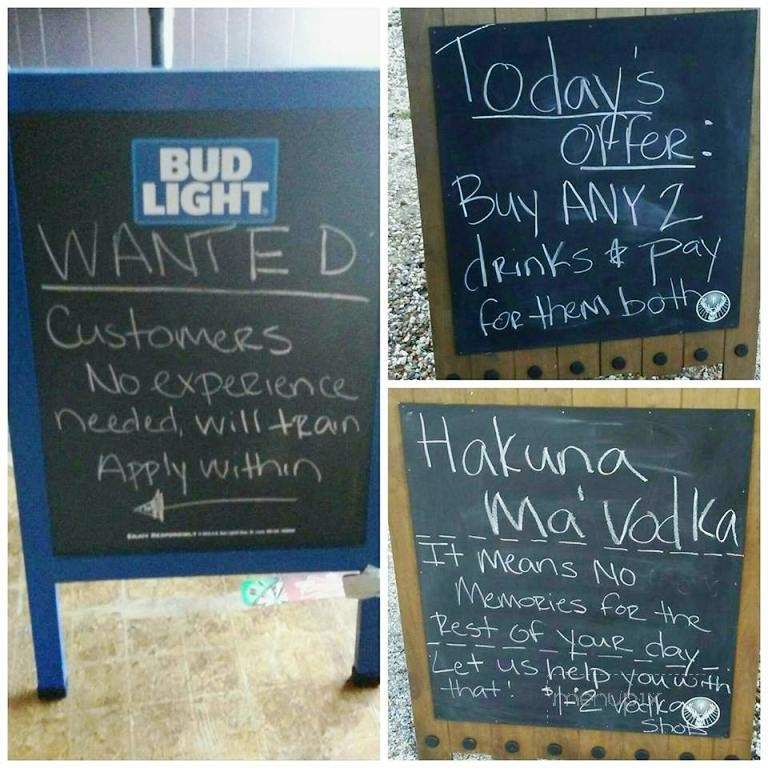 BUD
LIGHT
WANTED
Customers
No experience
needed, will train
Apply within
ENJOY RESPONSIBLY
Today's
OFFER:
Buy ANY 2
drinks & pay
for them both
Hakuna
Ma'Vodka
It means No
Memories for the
Rest of your day
Let us help you with
that! $1-2 vodka
shots